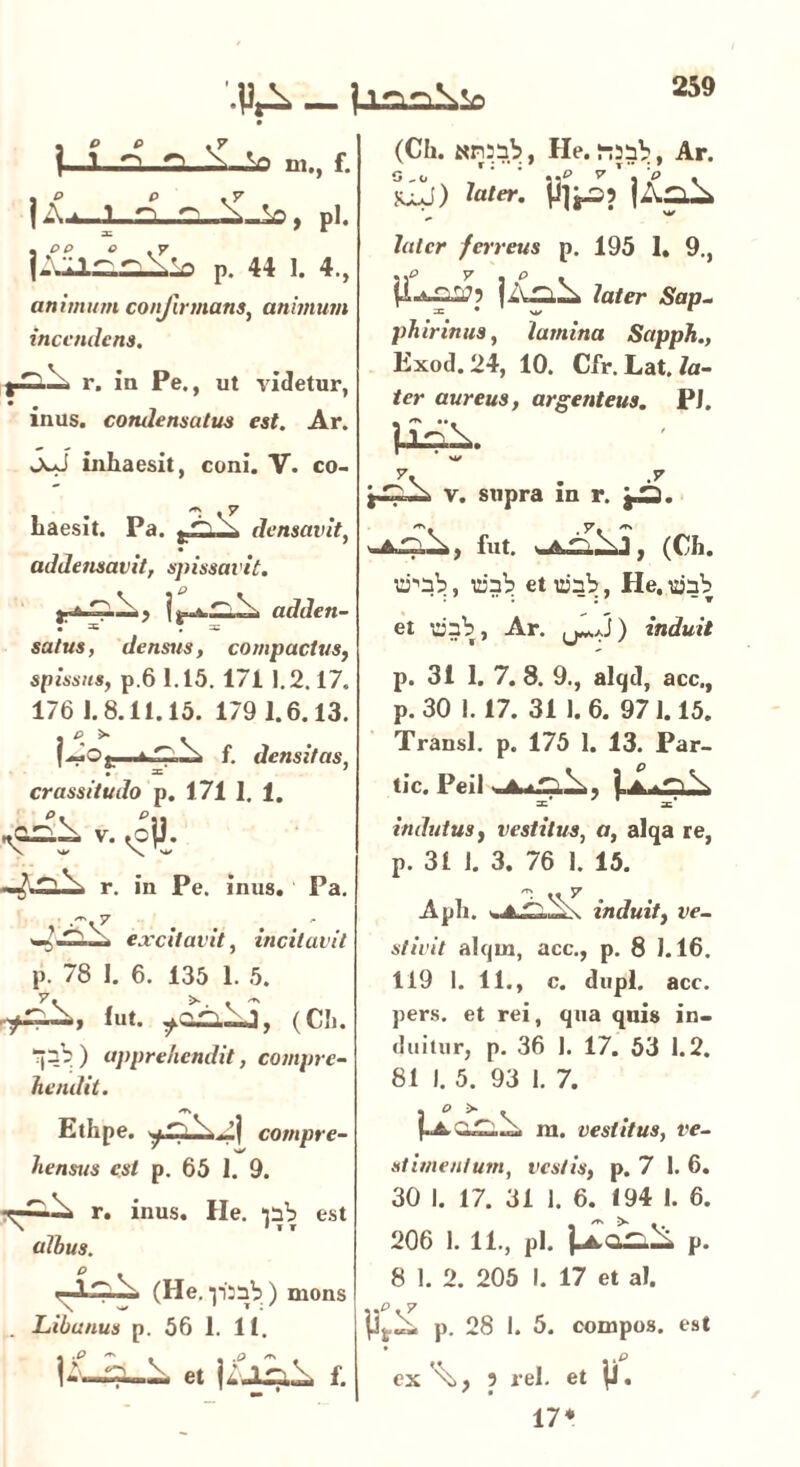 ܠܕܠܐ. — ܡܠܒܒܢܐ 259
ܡܠܒܒܢܐ m., f.
ܡܠܒܒܢܝܬܐ, pl.
ܡܠܒܒܢܝܬܐ p. 44 l. 4.,
animum confirmans, animum
incendens.
ܠܒܕ r. in Pe., ut videtur,
inus. condensatus est. Ar.
لبد inhaesit, coni. V. co-
haesit. Pa. ܠܒܕ densavit,
addensavit, spissavit.
ܠܒܝܕ, ܠܒܝܕܐ adden-
satus, densus, compactus,
spissus, p.6 l.15. 171 l.2.17.
176 l.8.11.15. 179 l.6.13.
ܠܒܝܕܘܬܐ f. densitas,
crassitudo p. 171 l. 1.
v.
r. in Pe. inus. Pa.
excitavit, incitavit
p. 78 l. 6. 135 l. 5.
ܠܒܟ, fut. ܢܠܒܘܟ, (Ch.
לבך) apprehendit, compre-
hendit.
Ethpe. ܐܬܠܒܟ compre-
hensus est p. 65 l. 9.
ܠܒܢ r. inus. He. לבן est
albus.
ܠܒܢܢ (He. לבנון) mons
Libanus p. 56 l. 11.
ܠܒܬܐ et ܠܒܢܬܐ f.
(Ch. לבנתא, He. לבנה, Ar.
لبنة) later. ܠܒܬܐ ܕܦܪܙܠܐ
later ferreus p. 195 l. 9.,
ܠܒܬܐ ܕܣܦܝܠܐ later Sap-
phirinus, lamina Sapph.,
Exod. 24, 10. Cfr. Lat. la-
ter aureus, argenteus. Pl.
ܠܒܢܐ.
ܠܒܪ v. supra in r. ܒܪ.
ܠܒܫ, fut. ܢܠܒܫ, (Ch.
לביש, לבש et לבש, He. לבש
et לבש, Ar. لبس) induit
p. 31 l. 7. 8. 9., alqd, acc.,
p. 30 l. 17. 31 l. 6. 97 l. 15.
Transl. p. 175 l. 13. Par-
tic. Peil ܠܒܝܫ, ܠܒܝܫܐ
indutus, vestitus, a, alqa re,
p. 31 l. 3. 76 l. 15.
Aph. ܐܠܒܫ induit, ve-
stivit alqm, acc., p. 8 l.16.
119 l. 11., c. dupl. acc.
pers. et rei, qua quis in-
duitur, p. 36 l. 17. 53 l.2.
81 l. 5. 93 l. 7.
ܠܒܘܫܐ m. vestitus, ve-
stimentum, vestis, p. 7 l. 6.
30 l. 17. 31 l. 6. 194 l. 6.
206 l. 11., pl. ܠܒܘܫܐ p.
8 l. 2. 205 l. 17 et al.
ܠܕܠܐ p. 28 l. 5. compos. est
ex ܠ, ܕ rel. et ܠܐ.
17*